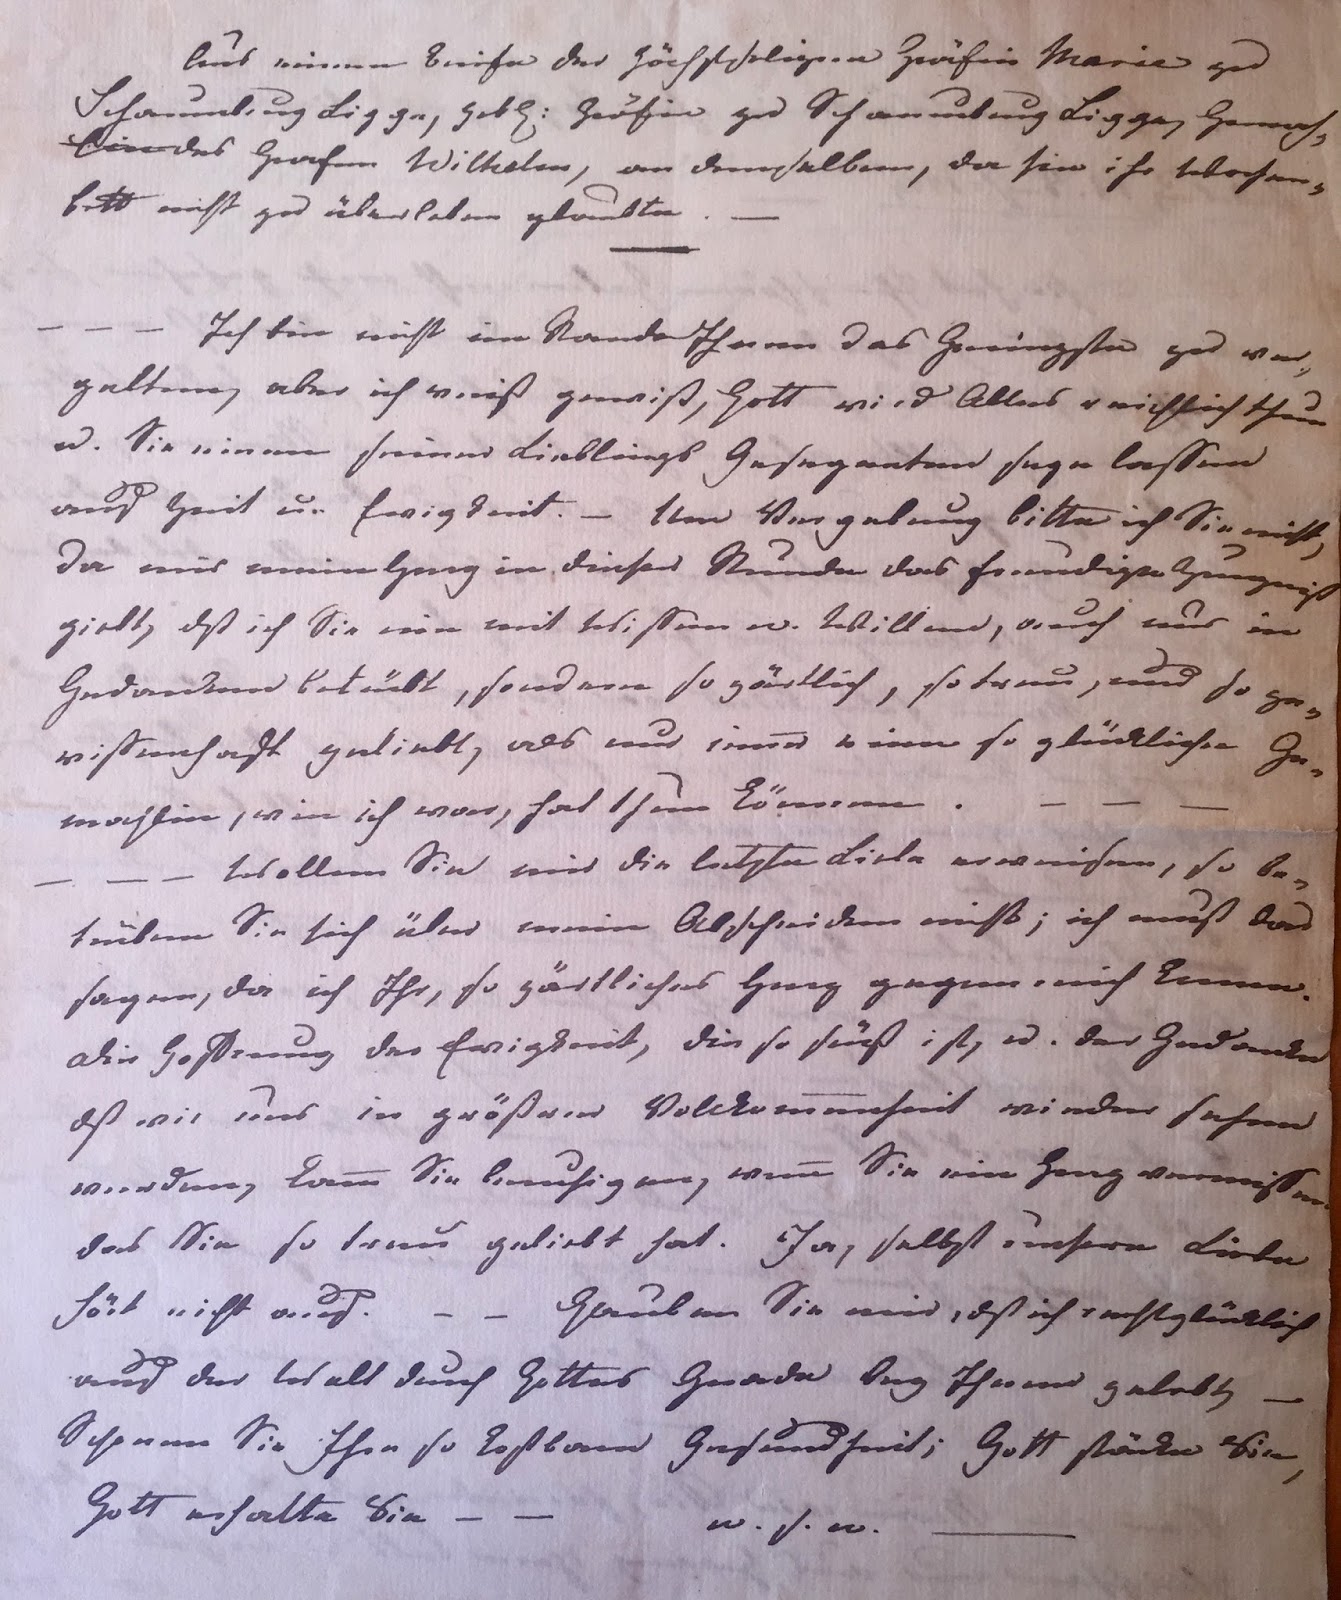 Aus einem Briefe der Höchstseligen Gräfin Marie zu
Schaumburg Lippe, gebh: Gräfin zu Schaumburg Lippe, Gemah-
lin des Grafen Wilhelm, an denselben, da sie ihr Wochen-
bett nicht zu überleben glaubte. —
— — — Ich bin nicht im Stande Ihnen das Geringste zu ver-
gelten, aber ich weiß gewiß, Gott wird Alles reichlich thun
u. Sie einen seiner Lieblings Gesegneten seyn lassen
auf Zeit u. Ewigkeit. — Um Vergebung bitte ich Sie nicht,
da mir mein Herz in dieser Stunde das freudige Zeugniß
giebt, dß ich Sie nie mit Wissen u. Willen, auch nur in
Gedanken betrübt, sondern so zärtlich, so treu, und so ge-
wissenhaft geliebt, als nur im̅er eine so glückliche Ge-
mahlin, wie ich war, hat thun können. — — —
— — — Wollen Sie mir die letzte Liebe erweisen, so be-
trüben Sie sich über mein Abscheiden nicht; ich muß das
sagen, da ich Ihr, so zärtliches Herz gegen mich kenne.
Die Hoffnung der Ewigkeit, die so süß ist, u. der Gedanke
dß wir uns in größerer Vollkommenheit wieder sehen
werden, kan̅ Sie beruhigen, wen̅ Sie ein Herz vermissen
das Sie so treu geliebt hat. Ja, selbst unsere Liebe
hört nicht auf. — — Glauben Sie mir, dß ich recht glücklich
auf der Welt durch Gottes Gnade bey Ihnen gelebt, —
Schonen Sie Ihre so kostbare Gesundheit; Gott stärke Sie,
Gott erhalte Sie — — u. s. w. —